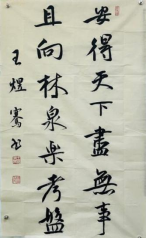 安得天下盡無事
且向林泉樂考盤
王煜騫書